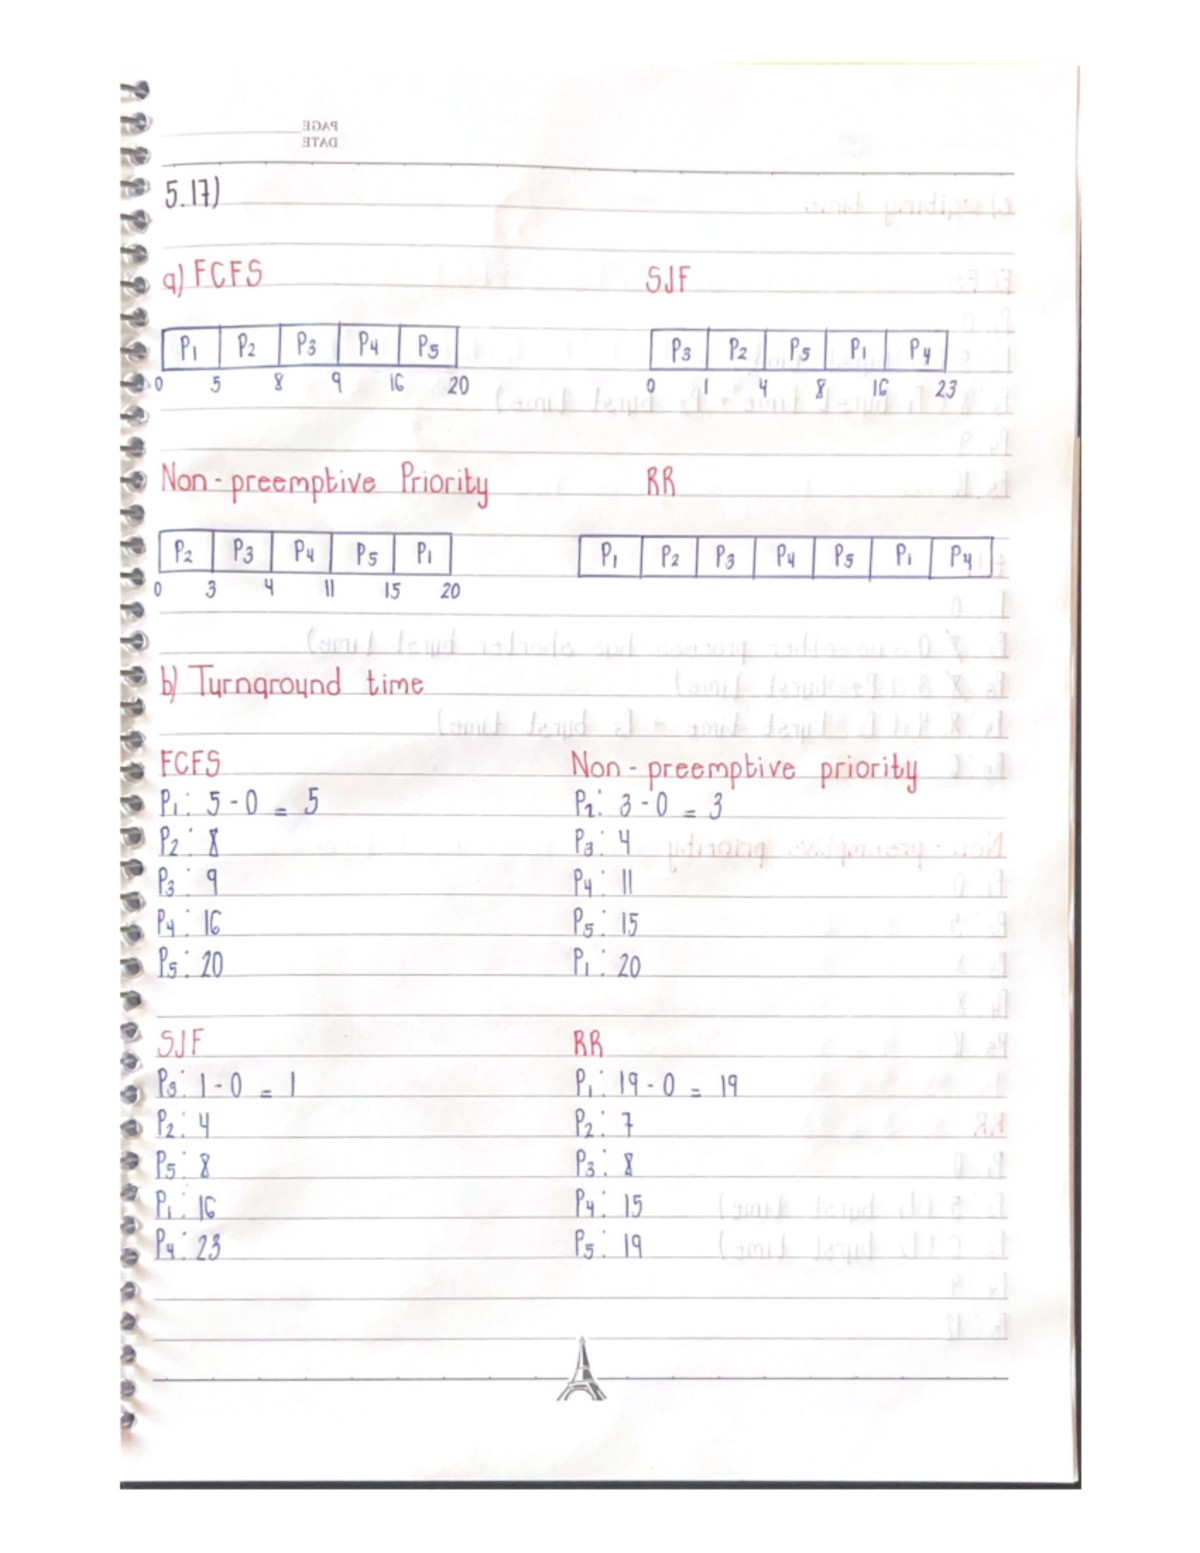 PAGE
DATE
5.17)
a) FCFS
P1 P2 P3 P4 P5
0 5 8 9 16 20
SJF
P3 P2 P5 P1 P4
0 1 4 8 16 23
Non-preemptive Priority
P2 P3 P4 P5 P1
0 3 4 11 15 20
RR
P1 P2 P3 P4 P5 P1 P4
b) Turnaround time
FCFS
P1: 5-0 = 5
P2: 8
P3: 9
P4: 16
P5: 20
Non-preemptive priority
P2: 3-0 = 3
P3: 4
P4: 11
P5: 15
P1: 20
SJF
P3: 1-0 = 1
P2: 4
P5: 8
P1: 16
P4: 23
RR
P1: 19-0 = 19
P2: 7
P3: 8
P4: 15
P5: 19